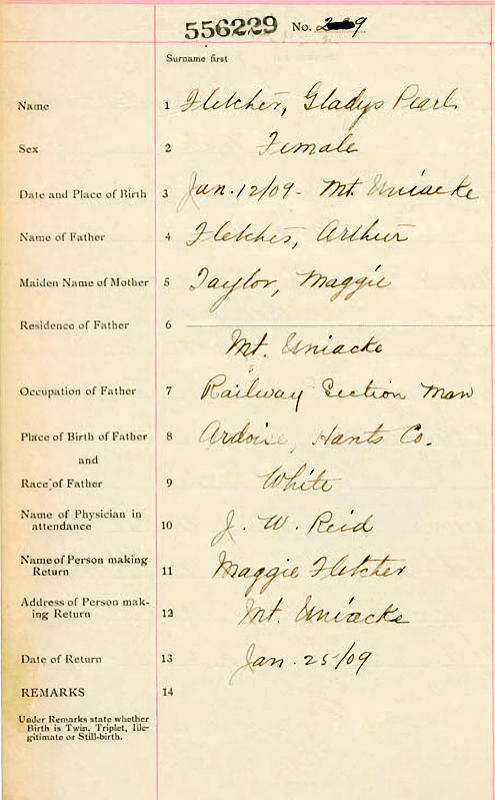 556229 No. 9
Surname first
Name 1 Fletcher, Gladys Pearl
Sex 2 Female
Date and Place of Birth 3 Jan. 12/09 - Mt. Uniacke
Name of Father 4 Fletcher, Arthur
Maiden Name of Mother 5 Taylor, Maggie
Residence of Father 6
Mt. Uniacke
Occupation of Father 7 Railway Section Man
Place of Birth of Father 8 Ardoise, Hants Co.
and
Race of Father 9 White
Name of Physician in
attendance 10 J. W. Reid
Name of Person making
Return 11 Maggie Fletcher
Address of Person mak-
ing Return 12 Mt. Uniacke
Date of Return 13 Jan. 25/09
REMARKS 14
Under Remarks state whether
Birth is Twin, Triplet, Ille-
gitimate or Still-birth.